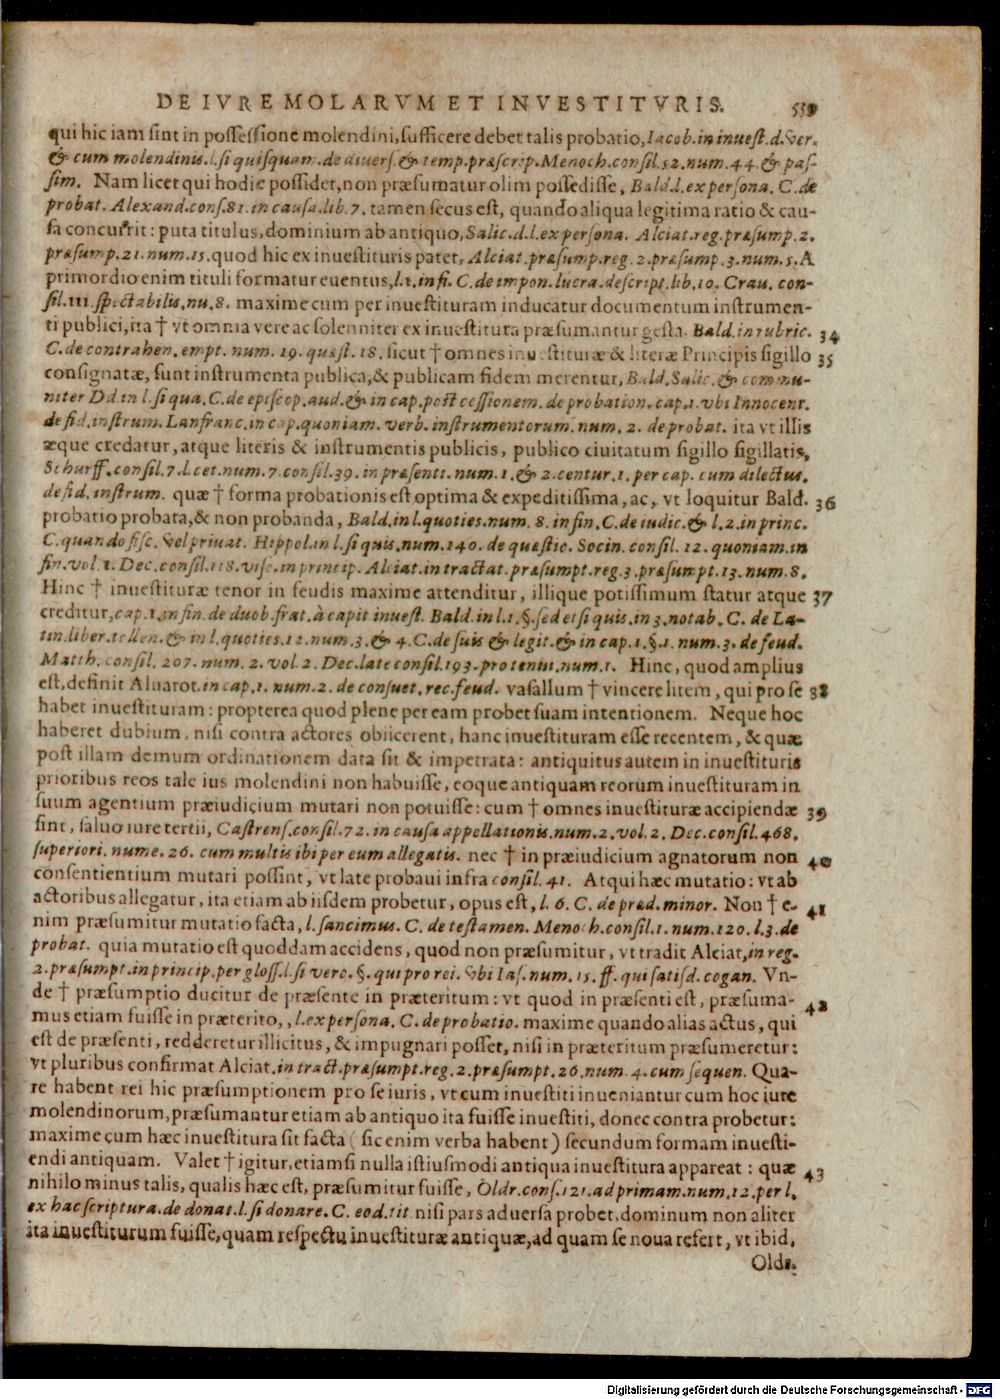 DE IVRE MOLARVM ET INVESTITVRIS. 539
qui hic iam sint in possessione molendini, sufficere debet talis probatio, Iacob. in inuest. d. ver.
& cum molendinis. l. si quisquam. de diuers. & temp. præscrip. Menoch. consil. 52. num. 44. & pas-
sim. Nam licet qui hodie possidet, non præsumatur olim possedisse, Bald. l. ex persona. C. de
probat. Alexand. cons. 81. in causa. lib. 7. tamen secus est, quando aliqua legitima ratio & cau-
sa concurrit: puta titulus, dominium ab antiquo, Salic. d. l. ex persona. Alciat. reg. præsump. 2.
præsump. 21. num. 15. quod hic ex inuestituris patet, Alciat. præsump. reg. 2. præsump. 3. num. 5. A
primordio enim tituli formatur euentus, l. 1. infi. C. de impon. lucra. descript. lib. 10. Crau. con-
sil. 111. spectabilis. nu. 8. maxime cum per inuestituram inducatur documentum instrumen-
ti publici, ita † vt omnia vere ac solenniter ex inuestitura præsumantur gesta. Bald. in rubric. 34
C. de contrahen. empt. num. 19. quæst. 18. sicut † omnes inuestituræ & literæ Principis sigillo 35
consignatæ, sunt instrumenta publica, & publicam fidem merentur, Bald. Salic. & commu-
niter Dd. in l. si qua. C. de episcop. aud. & in cap. post cessionem. de probation. cap. 1. vbi Innocent.
de fid. instrum. Lanfranc. in cap. quoniam. verb. instrumentorum. num. 2. de probat. ita vt illis
æque credatur, atque literis & instrumentis publicis, publico ciuitatum sigillo sigillatis,
Schurff. consil. 7. licet. num. 7. consil. 39. in præsenti. num. 1. & 2. centur. 1. per cap. cum dilectus.
de fid. instrum. quæ † forma probationis est optima & expeditissima, ac, vt loquitur Bald. 36
probatio probata, & non probanda, Bald. in l. quoties. num. 8. in fin. C. de iudic. & l. 2. in princ.
C. quando fisc. vel priuat. Hippol. in l. si quis. num. 140. de quæstio. Socin. consil. 12. quoniam. in
fin. vol. 1. Dec. consil. 118. vise. in princip. Alciat. in tractat. præsumpt. reg. 3. præsumpt. 13. num. 8.
Hinc † inuestituræ tenor in feudis maxime attenditur, illique potissimum statur atque 37
creditur, cap. 1. in fin. de duob. frat. à capit inuest. Bald. in l. 1. §. sed et si quis. in 3. notab. C. de La-
tin. liber. tollen. & in l. quoties. 12. num. 3. & 4. C. de suis & legit. & in cap. 1. §. 1. num. 3. de feud.
Matth. consil. 207. num. 2. vol. 2. Dec. late consil. 193. pro tenui. num. 1. Hinc, quod amplius
est, definit Aluarot. in cap. 1. num. 2. de consuet. rec. feud. vasallum † vincere litem, qui pro se 38
habet inuestituram: propterea quod plene per eam probet suam intentionem. Neque hoc
haberet dubium, nisi contra actores obiicerent, hanc inuestituram esse recentem, & quæ
post illam demum ordinationem data sit & impetrata: antiquitus autem in inuestituris
prioribus reos tale ius molendini non habuisse, eoque antiquam reorum inuestituram in
suum agentium præiudicium mutari non potuisse: cum † omnes inuestituræ accipiendæ 39
sint, saluo iure tertii, Castrens. consil. 72. in causa appellationis. num. 2. vol. 2. Dec. consil. 468.
superiori. nume. 26. cum multis ibi per eum allegatis. nec † in præiudicium agnatorum non 40
consentientium mutari possint, vt late probaui infra consil. 41. Atqui hæc mutatio: vt ab
actoribus allegatur, ita etiam ab iisdem probetur, opus est, l. 6. C. de præd. minor. Non † e- 41
nim præsumitur mutatio facta, l. sancimus. C. de testamen. Menoch. consil. 1. num. 120. l. 3. de
probat. quia mutatio est quoddam accidens, quod non præsumitur, vt tradit Alciat, in reg.
2. præsumpt. in princip. per gloss. l. si vero. §. qui pro rei. vbi Ias. num. 15. ff. qui satisd. cogan. Vn-
de † præsumptio ducitur de præsente in præteritum: vt quod in præsenti est, præsuma- 42
mus etiam fuisse in præterito, , l. ex persona. C. de probatio. maxime quando alias actus, qui
est de præsenti, redderetur illicitus, & impugnari posset, nisi in præteritum præsumeretur:
vt pluribus confirmat Alciat. in tract. præsumpt. reg. 2. præsumpt. 26. num. 4. cum sequen. Qua-
re habent rei hic præsumptionem pro se iuris, vt cum inuestiti inueniantur cum hoc iure
molendinorum, præsumantur etiam ab antiquo ita fuisse inuestiti, donec contra probetur:
maxime cum hæc inuestitura sit facta (sic enim verba habent) secundum formam inuesti-
endi antiquam. Valet † igitur, etiamsi nulla istiusmodi antiqua inuestitura appareat: quæ 43
nihilo minus talis, qualis hæc est, præsumitur fuisse, Oldr. cons. 121. ad primam. num. 12. per l.
ex hac scriptura. de donat. l. si donare. C. eod. tit nisi pars aduersa probet, dominum non aliter
ita inuestiturum fuisse, quam respectu inuestituræ antiquæ, ad quam se noua refert, vt ibid.
Oldr.
Digitalisierung gefördert durch die Deutsche Forschungsgemeinschaft - DFG